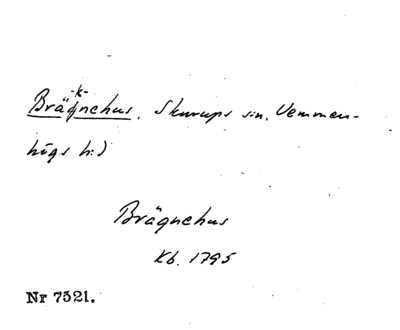 -k-
Bräqnehus, Skurups sn, Vemmen-
högs hd
Bräqnehus
Kb. 1795
Nr 7521.